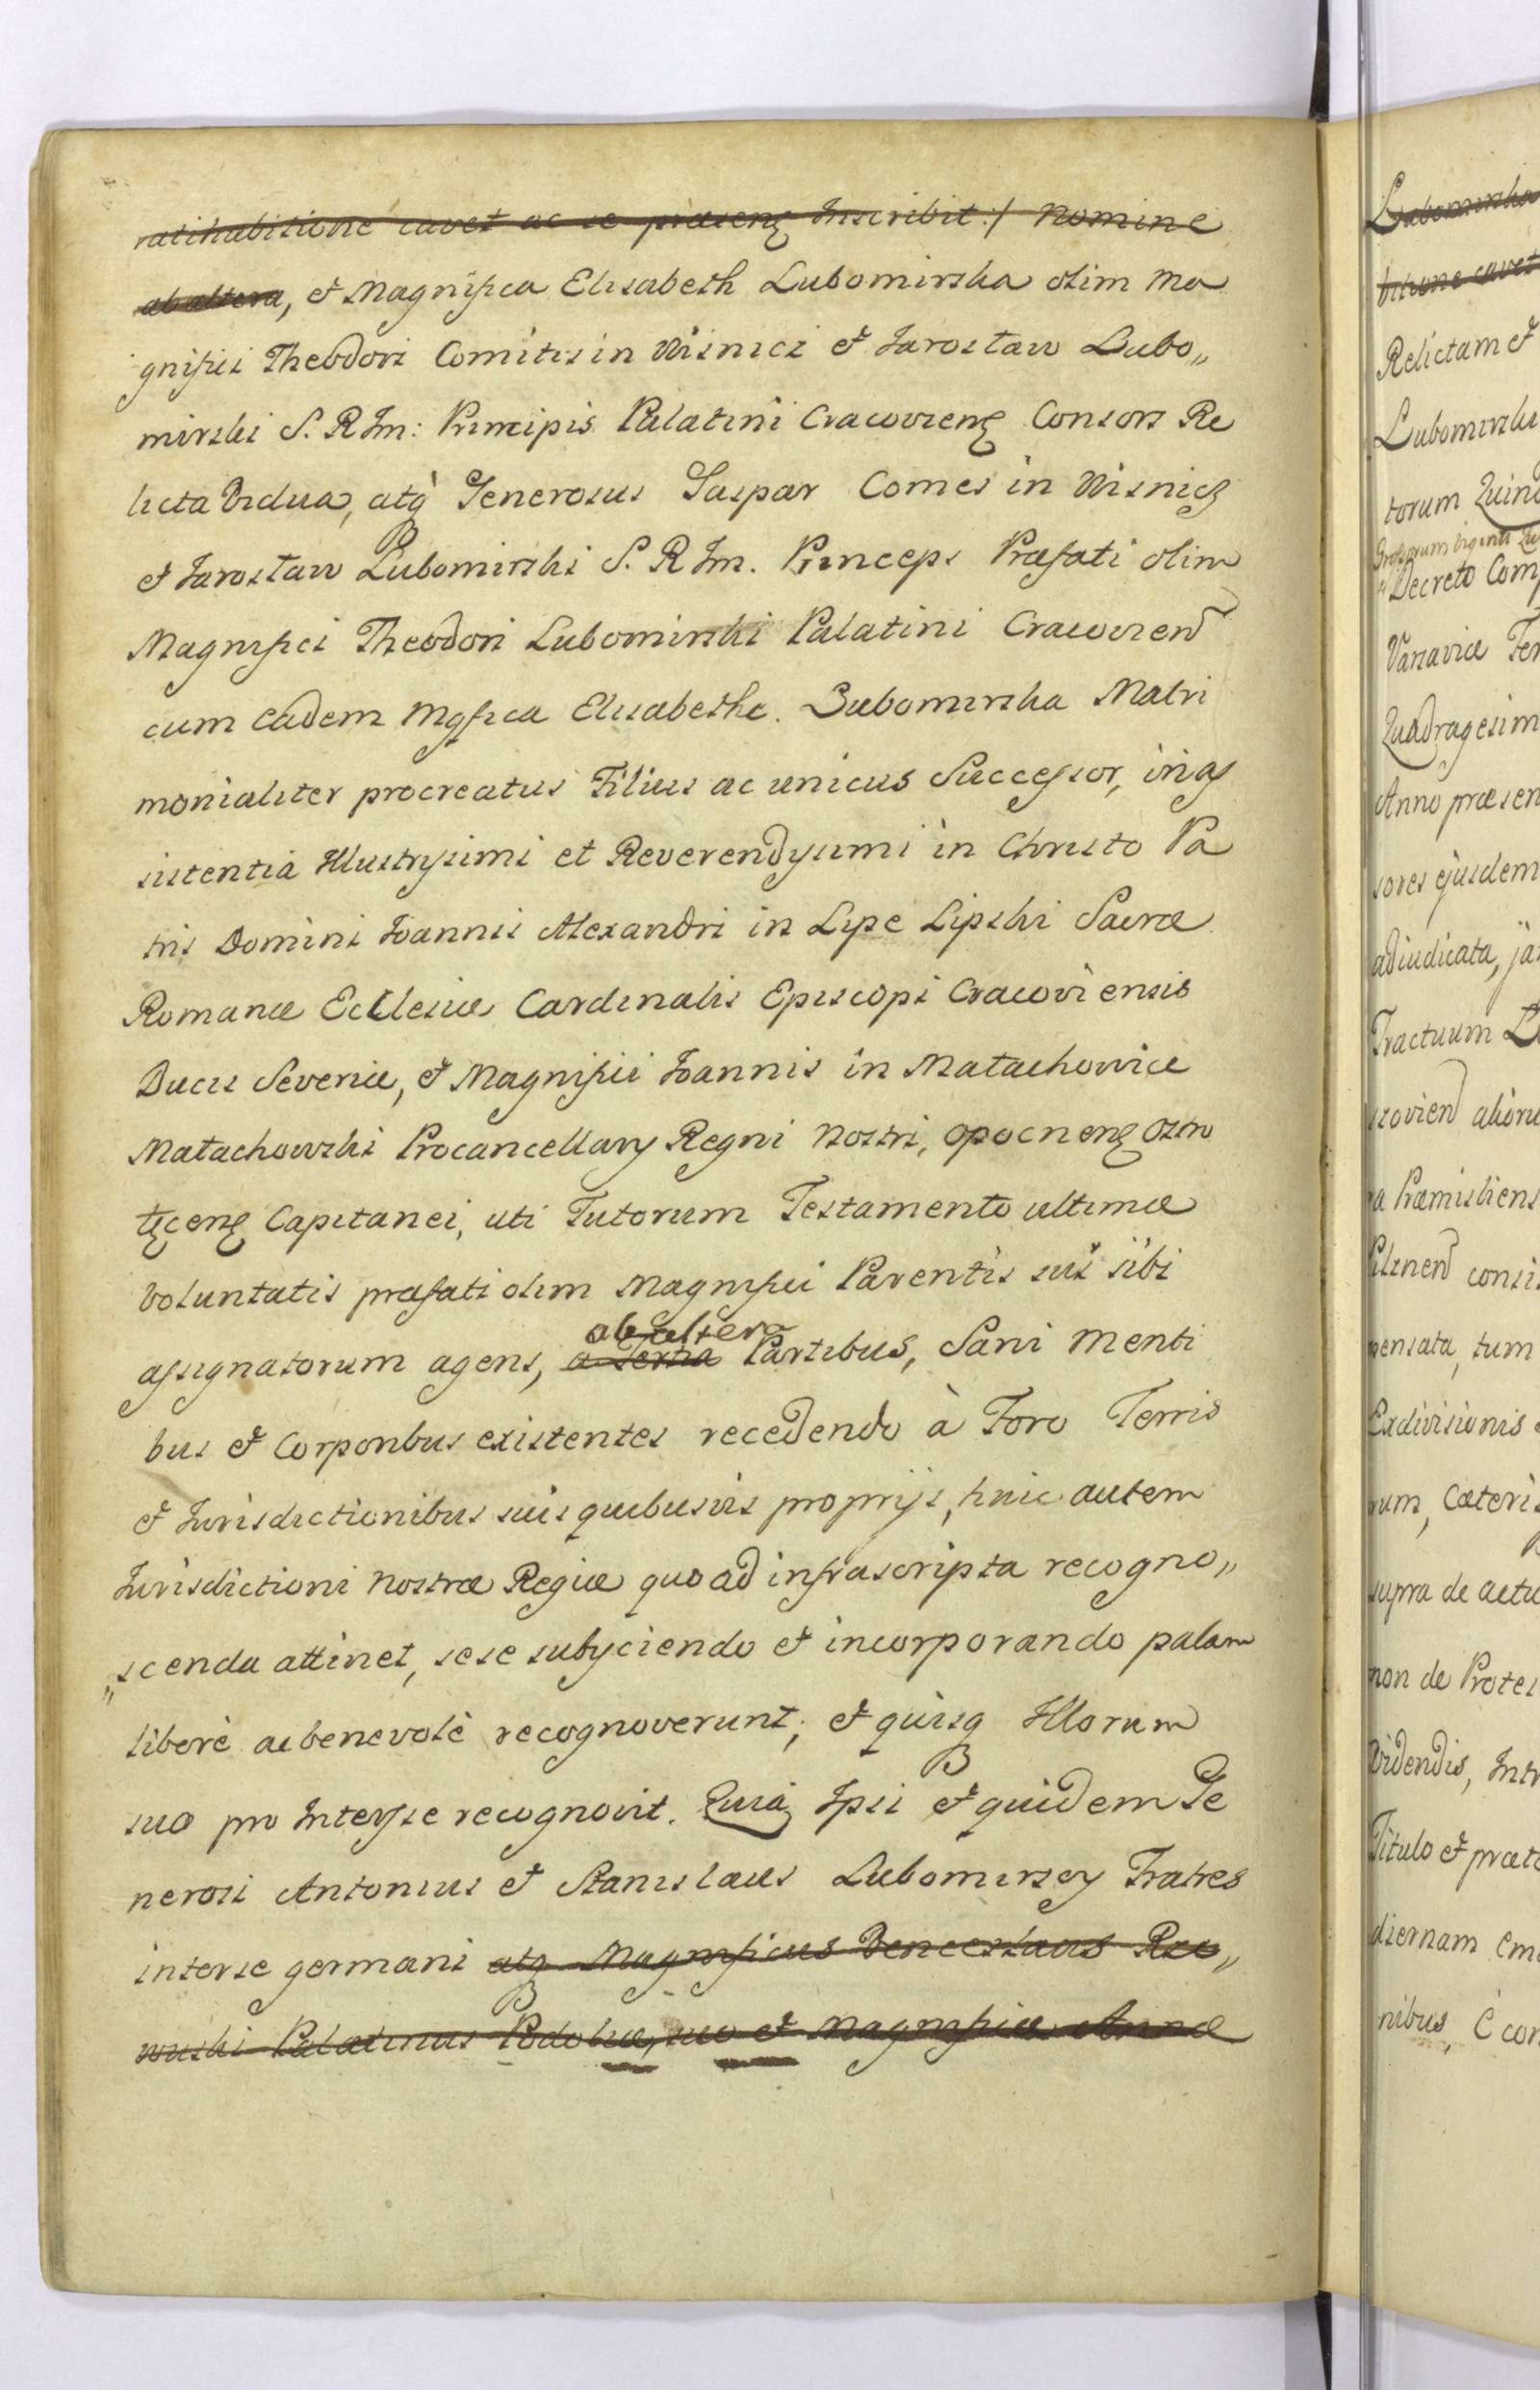 ratihabitione cavet ac se praesenz Inscribit:/ Nomine
ab altera, et Magnifica Elisabeth Lubomirska olim Ma
gnifici Theodori Comitis in Wisnicz et Jarosław Lubo„
mirski S. R Im: Principis Palatini Cracovienz Consors Re
licta Vidua, atq Generosus Gaspar Comes in Wisnicz
et Jarosław Lubomirski S. R Im. Princeps Praefati olim
Magnifici Theodori Lubomirski Palatini Cracovien
cum eadem Mgfica Elisabethe. Lubomirska Matri
monialiter procreatus Filius ac unicus Successor, in as
sistentia Illustrissimi et Reverendissimi in Christo Pa
tris Domini Joannis Alexandri in Lipe Lipski Sacrae
Romanae Ecclesiae Cardinalis Episcopi Cracoviensis
Ducis Severiae, et Magnifici Joannis in Małachowice
Małachowski Procancellary Regni Nostri, Opocnenz Ostro
łęcenz Capitanei, uti Tutorum Testamento ultimae
Voluntatis praefati olim Magnifici Parentis sui sibi
ab altera
assignatorum agens, a Tertia Partibus, Sani Menti
bus et Corporibus existentes recedendo à Foro Terris
et Jurisdictionibus suis quibusvis proprijs, huic autem
Jurisdictioni Nostrae Regiae quoad infrascripta recogno„
„scenda attinet, sese subyciendo et incorporando palam
liberè ac benevolè recognoverunt; et quisq Illorum
suo pro Interesse recognovit. Quia Ipsi et quidem Ge
nerosi Antonius et Stanislaus Lubomirscy Fratres
inter se germani atq Magnificus Venceslaus Rze„
wuski Palatinus Podoliae, suo et Magnificae Annae
Lubomirska
bitione cavet
Relictam et
Lubomirski
torum Quind
Decreto Com
Varsaviae Fer
Quadragesim
Anno praesen
sores ejusdem
adiudicata, ja
Tractuum
Praemisliens
consi
pensata, tum
Exdivisionis
Caeteri
supra de actu
non de Protes
videndis, Intr
Titulo et praet
diernam
nibus,